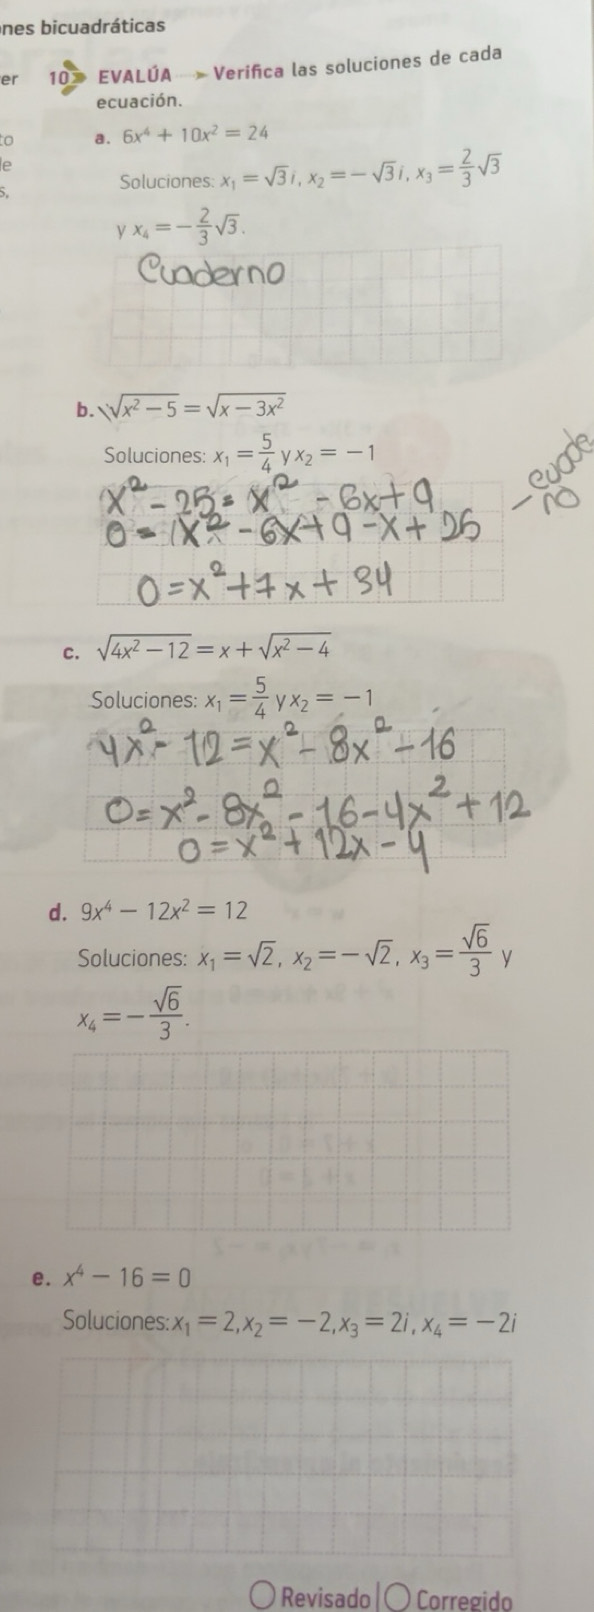 nes bicuadráticas
er 10 EVALÚA Verifica las soluciones de cada
ecuación.
to
a. 6x⁴ + 10x² = 24
le
s,
Soluciones: x₁ = √3 i, x₂ = −√3 i, x₃ = 2/3 √3
y x₄ = −2/3 √3.
Cuaderno
b. √(x² − 5) = √(x − 3x²)
Soluciones: x₁ = 5/4 y x₂ = −1
- cuade
no
x² - 25 = x² - 6x + 9
0 = x² - 6x + 9 - x + 25
0 = x² + 7x + 34
c. √(4x² − 12) = x + √(x² − 4)
Soluciones: x₁ = 5/4 y x₂ = −1
4x² - 12 = x² - 8x² - 16
0 = x² - 8x² - 16 - 4x² + 12
0 = x² + 12x - 4
d. 9x⁴ − 12x² = 12
Soluciones: x₁ = √2, x₂ = −√2, x₃ = √6/3 y
x₄ = −√6/3.
e. x⁴ − 16 = 0
Soluciones: x₁ = 2, x₂ = −2, x₃ = 2i, x₄ = −2i
Revisado | Corregido